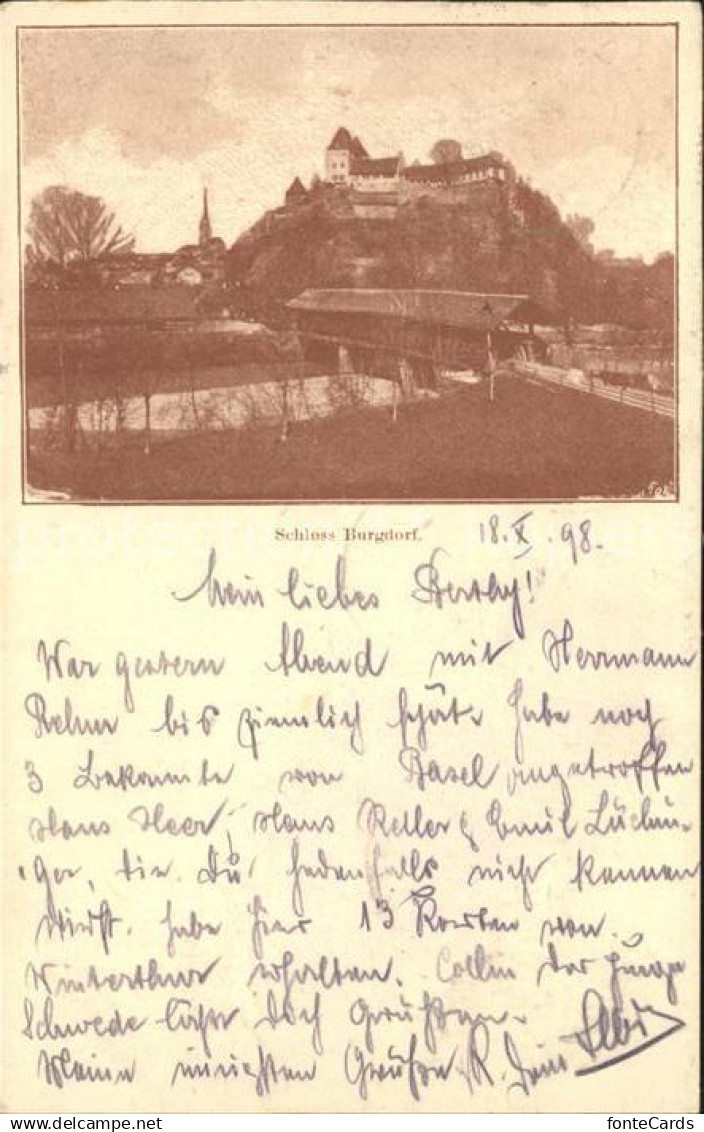 Schloss Burgdorf.
18. X. 98.
Mein liebes Berthy!
War gestern Abend mit Herrmann
Rehm bis ziemlich spät. habe noch
3 Bekannte von Basel angetroffen
Hans Heer, Hans Keller & Emil Lüchin-
ger, die Du jedenfalls nicht kennen
wirst. habe hier 13 Karten von
Winterthur erhalten. Collin der junge
Schwede lässt dich Grüssen.
Meine innigsten Grüsse K. Dein
fonteCards